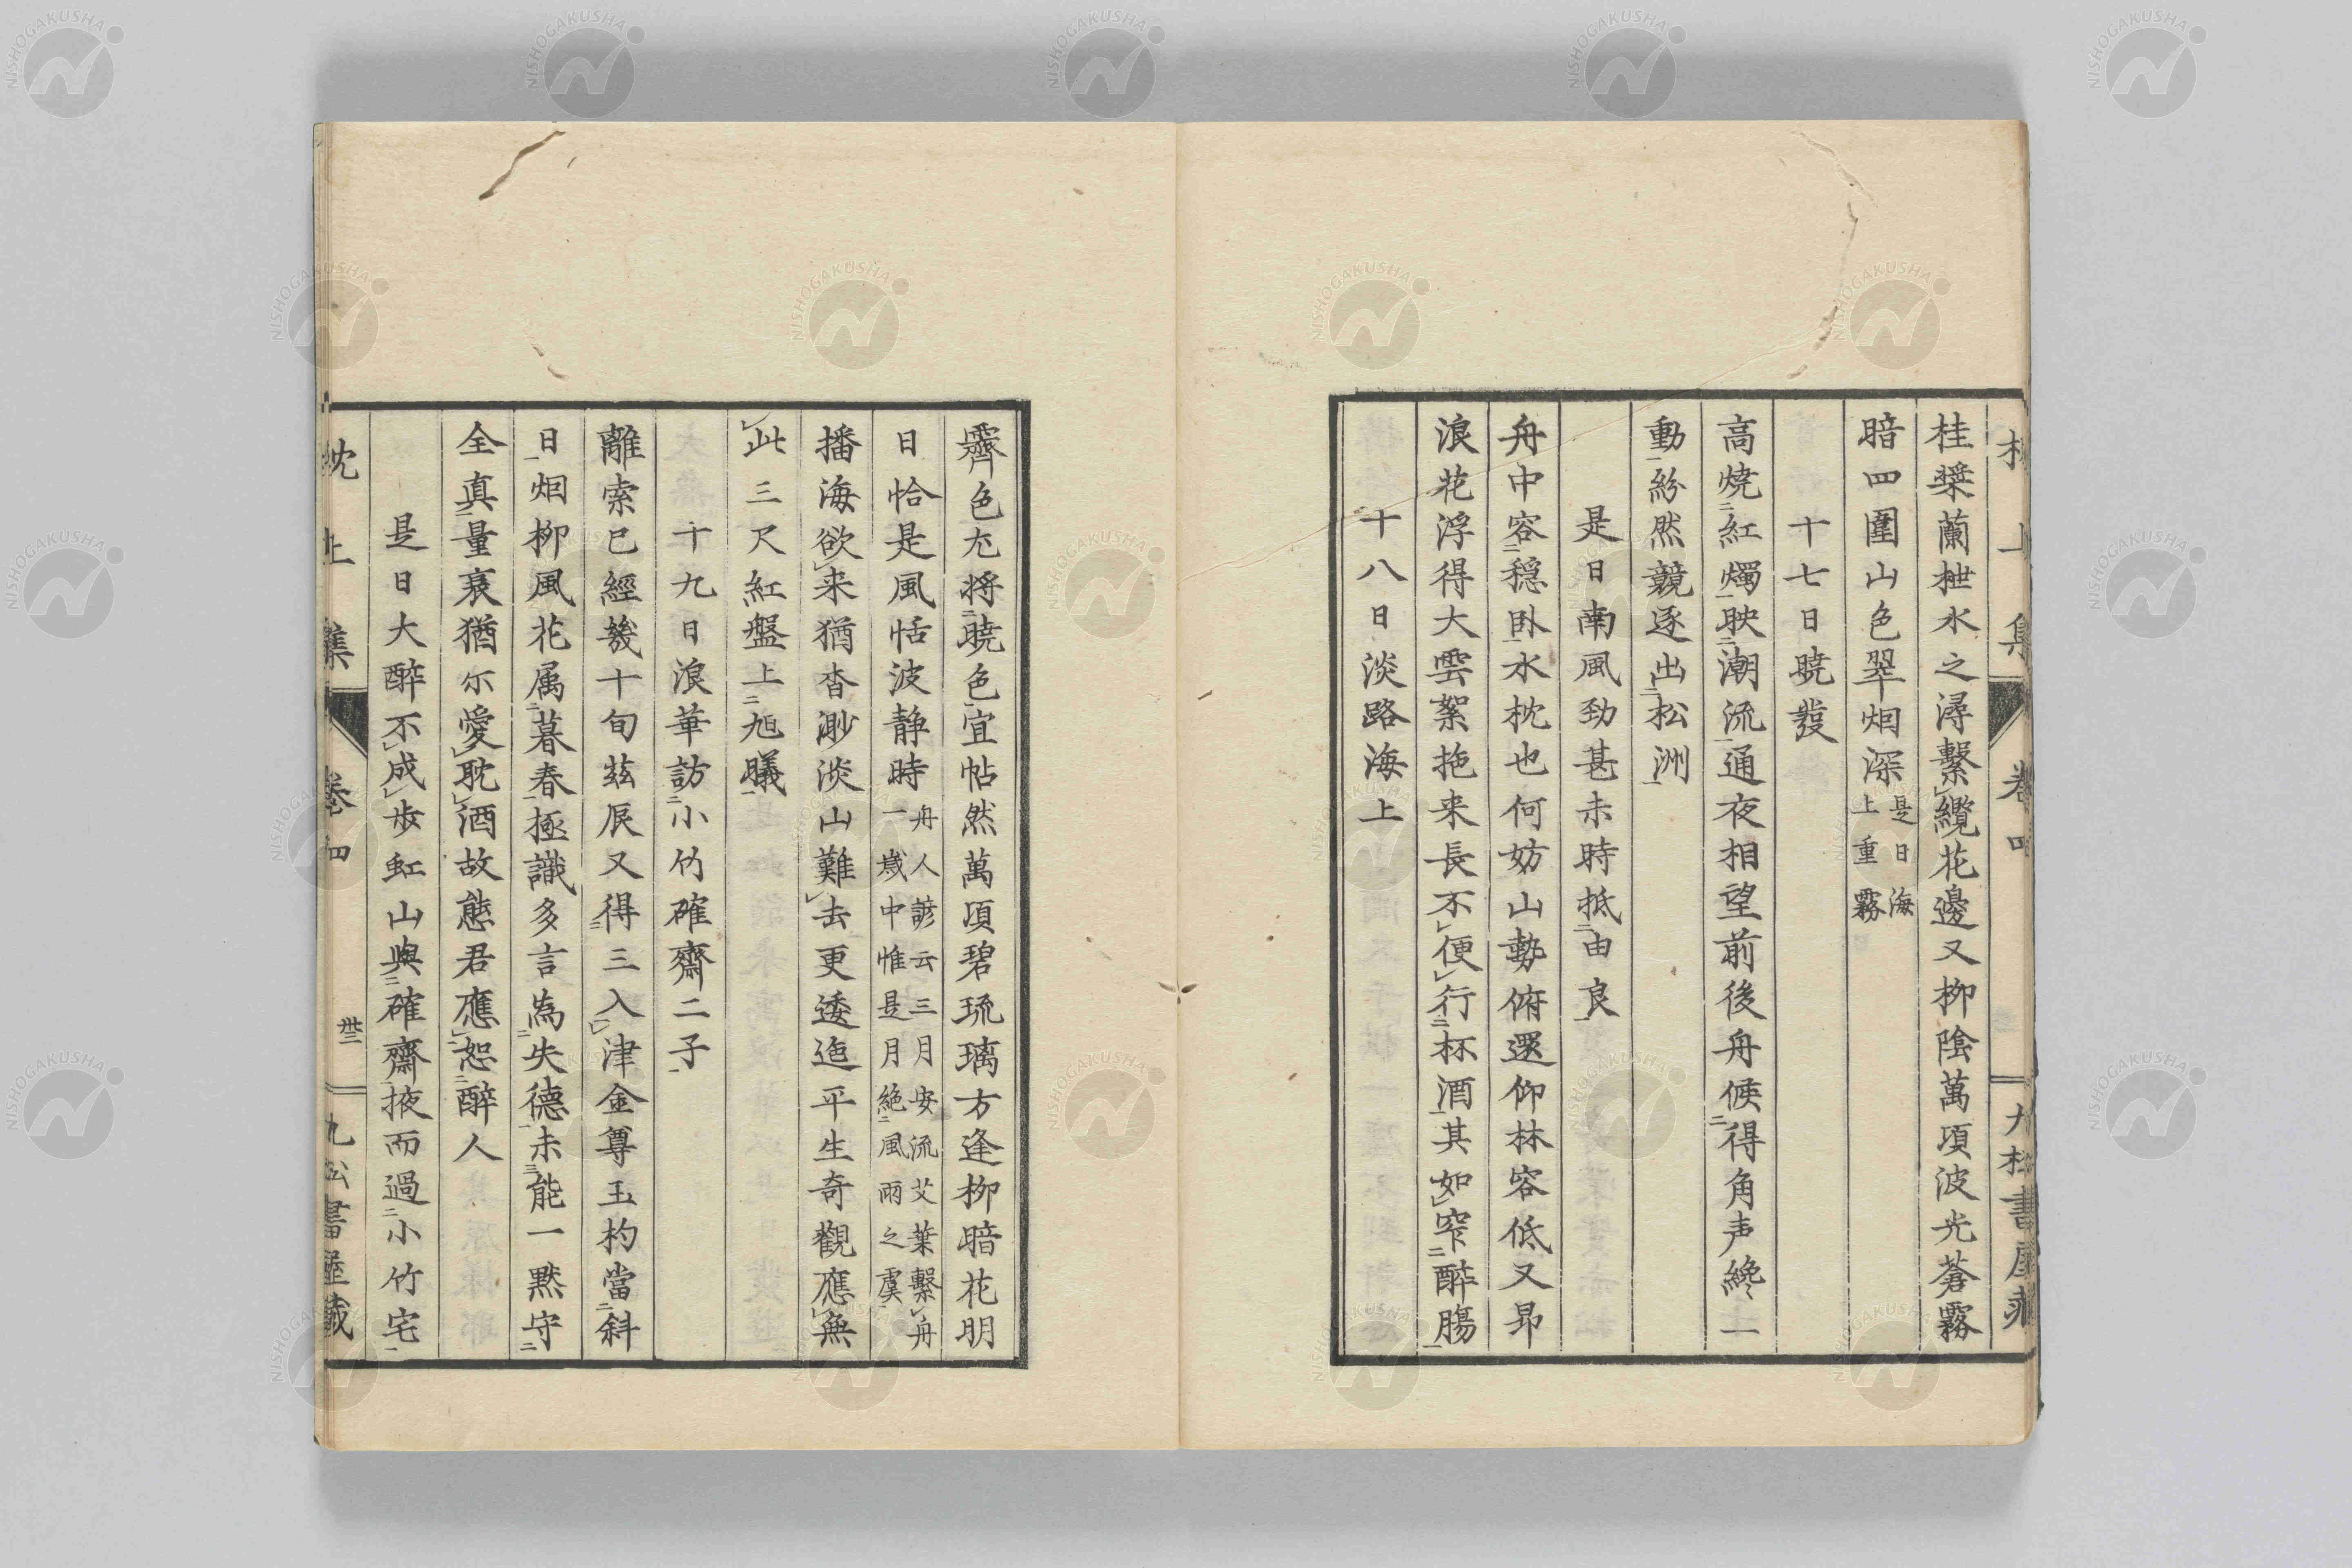 枕上集 卷四 九松書屋藏
桂槳蘭枻水之潯繫纜花邊又柳陰萬項波光蒼霧
暗四圍山色翠烟深是日海上重霧
十七日曉發
高燒二紅燭一映二潮流一通夜相望前後舟候二得角声纔一
動一紛然競逐出二松洲一
是日南風劲甚未時抵二由良一
舟中容二穏卧一水枕也何妨山勢俯還仰林容低又昂
浪花浮得大雲絮拖来長不レ便レ行二杯酒一其如レ窄二醉腸一
十八日淡路海上
霽色尤将二曉色一宜帖然萬項碧琉璃方逢柳暗花明
日恰是風恬波静時舟人諺云三月安流艾葉繫レ舟一歳中惟是月絶二風雨之虞一
播海欲レ来猶杳渺淡山難レ去更逶迤平生奇觀應レ無
レ此三尺紅盤上二旭曦一
十九日浪華訪二小竹確齋二子一
離索已經幾十旬玆辰又得三入レ津金尊玉杓當二斜
日一烟柳風花属二暮春一極識多言為二失德一未三能一黙守二
全真一量衰猶尓愛レ耽レ酒故態君應レ恕二醉人一
是日大醉不レ成レ歩虹山與二確齋一掖而過二小竹宅一
枕上集 卷四 卅三 九松書屋藏
NISHOGAKUSHA